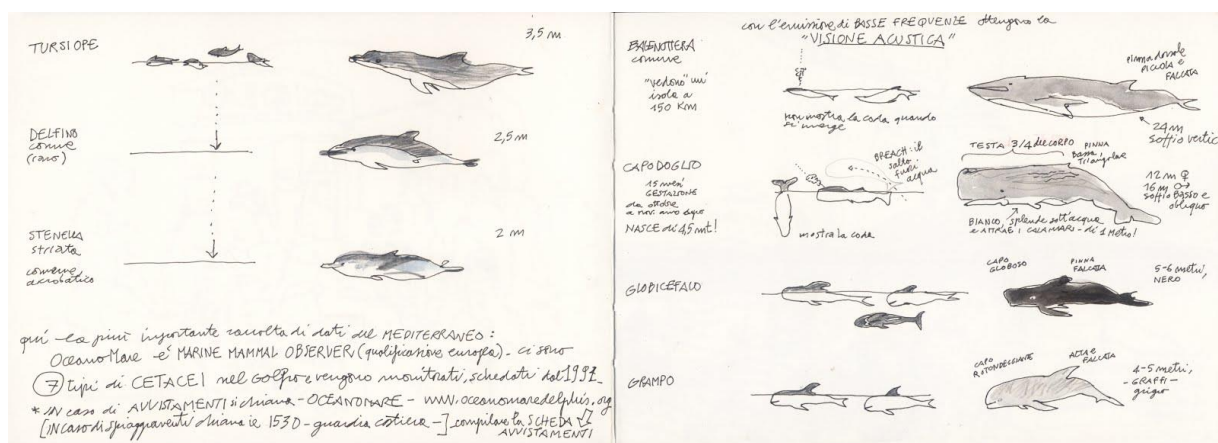 TURSIOPE
3,5 m
DELFINO
comune
(raro)
2,5 m
STENELLA
striata
comune,
acrobatico
2 m
qui la più importante raccolta di dati del MEDITERRANEO:
OceanoMare è MARINE MAMMAL OBSERVER (qualificazione europea) - ci sono
7 tipi di CETACEI nel Golfo e vengono monitorati, schedati dal 1991
* IN caso di AVVISTAMENTI si chiama - OCEANOMARE - www.oceanomaredelphis.org
[IN caso di spiaggiamenti chiama il 1530 - guardia costiera -] compilare la SCHEDA
AVVISTAMENTI
con l'emissione di BASSE FREQUENZE ottengono la
"VISIONE ACUSTICA"
BALENOTTERA
comune
"vedono" un'
isola a
150 Km
non mostra la coda quando
si immerge
Pinna dorsale
PICCOLA e
FALCATA
24 m
soffio vertic
CAPODOGLIO
15 mesi
GESTAZIONE
da ottobre
a nov. anno dopo
NASCE di 4,5 mt!
mostra la coda
BREACH: il
salto
fuori
acqua
TESTA 3/4 del CORPO
PINNA
Bassa,
Triangolare
12 m ♀
16 m ♂
soffio Basso e
obliquo
BIANCO, splende sott'acqua
e ATTRAE i CALAMARI - di 1 Metro!
GLOBICEFALO
CAPO
GLOBOSO
PINNA
FALCATA
5-6 metri,
NERO
GRAMPO
CAPO
ROTONDEGGIANTE
ALTA e
FALCATA
4-5 metri,
- GRAFFI -
grigio